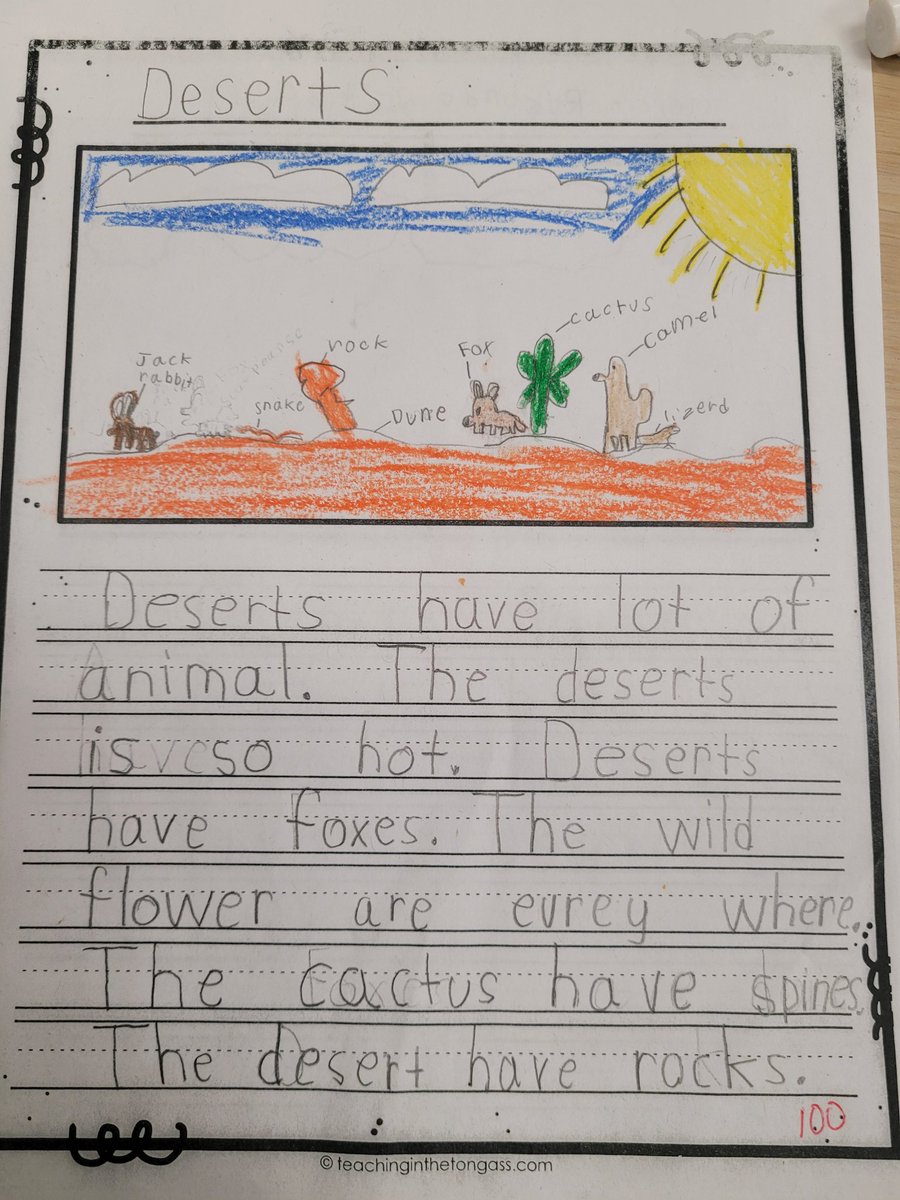 Deserts
rock
cactus
camel
Fox
Jack
rabbit
snake
Dune
lizerd
Deserts have lot of
animal. The deserts
is so hot. Deserts
have foxes. The wild
flower are eurey where.
The cactus have spines.
The desert have rocks.
100
© teachinginthetongass.com